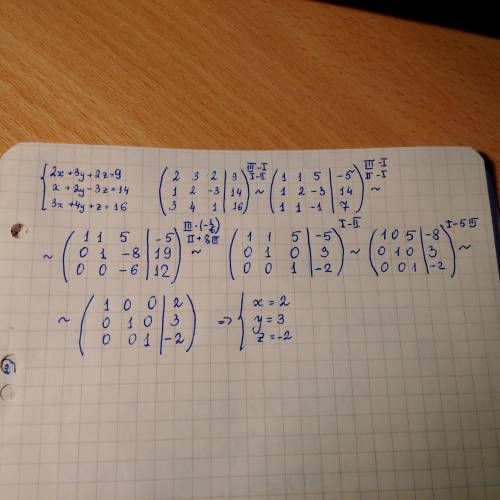 { 2x+3y+2z=9
x+2y-3z=14
3x+4y+z=16
( 2 3 2 | 9
1 2 -3 | 14
3 4 1 | 16 ) III-I I-II ~
( 1 1 5 | -5
1 2 -3 | 14
1 1 -1 | 7 ) III-I II-I ~
~ ( 1 1 5 | -5
0 1 -8 | 19
0 0 -6 | 12 ) III·(-1/6) II+8III ~
( 1 1 5 | -5
0 1 0 | 3
0 0 1 | -2 ) I-II ~
( 1 0 5 | -8
0 1 0 | 3
0 0 1 | -2 ) I-5III ~
~ ( 1 0 0 | 2
0 1 0 | 3
0 0 1 | -2 )
=> { x=2
y=3
z=-2